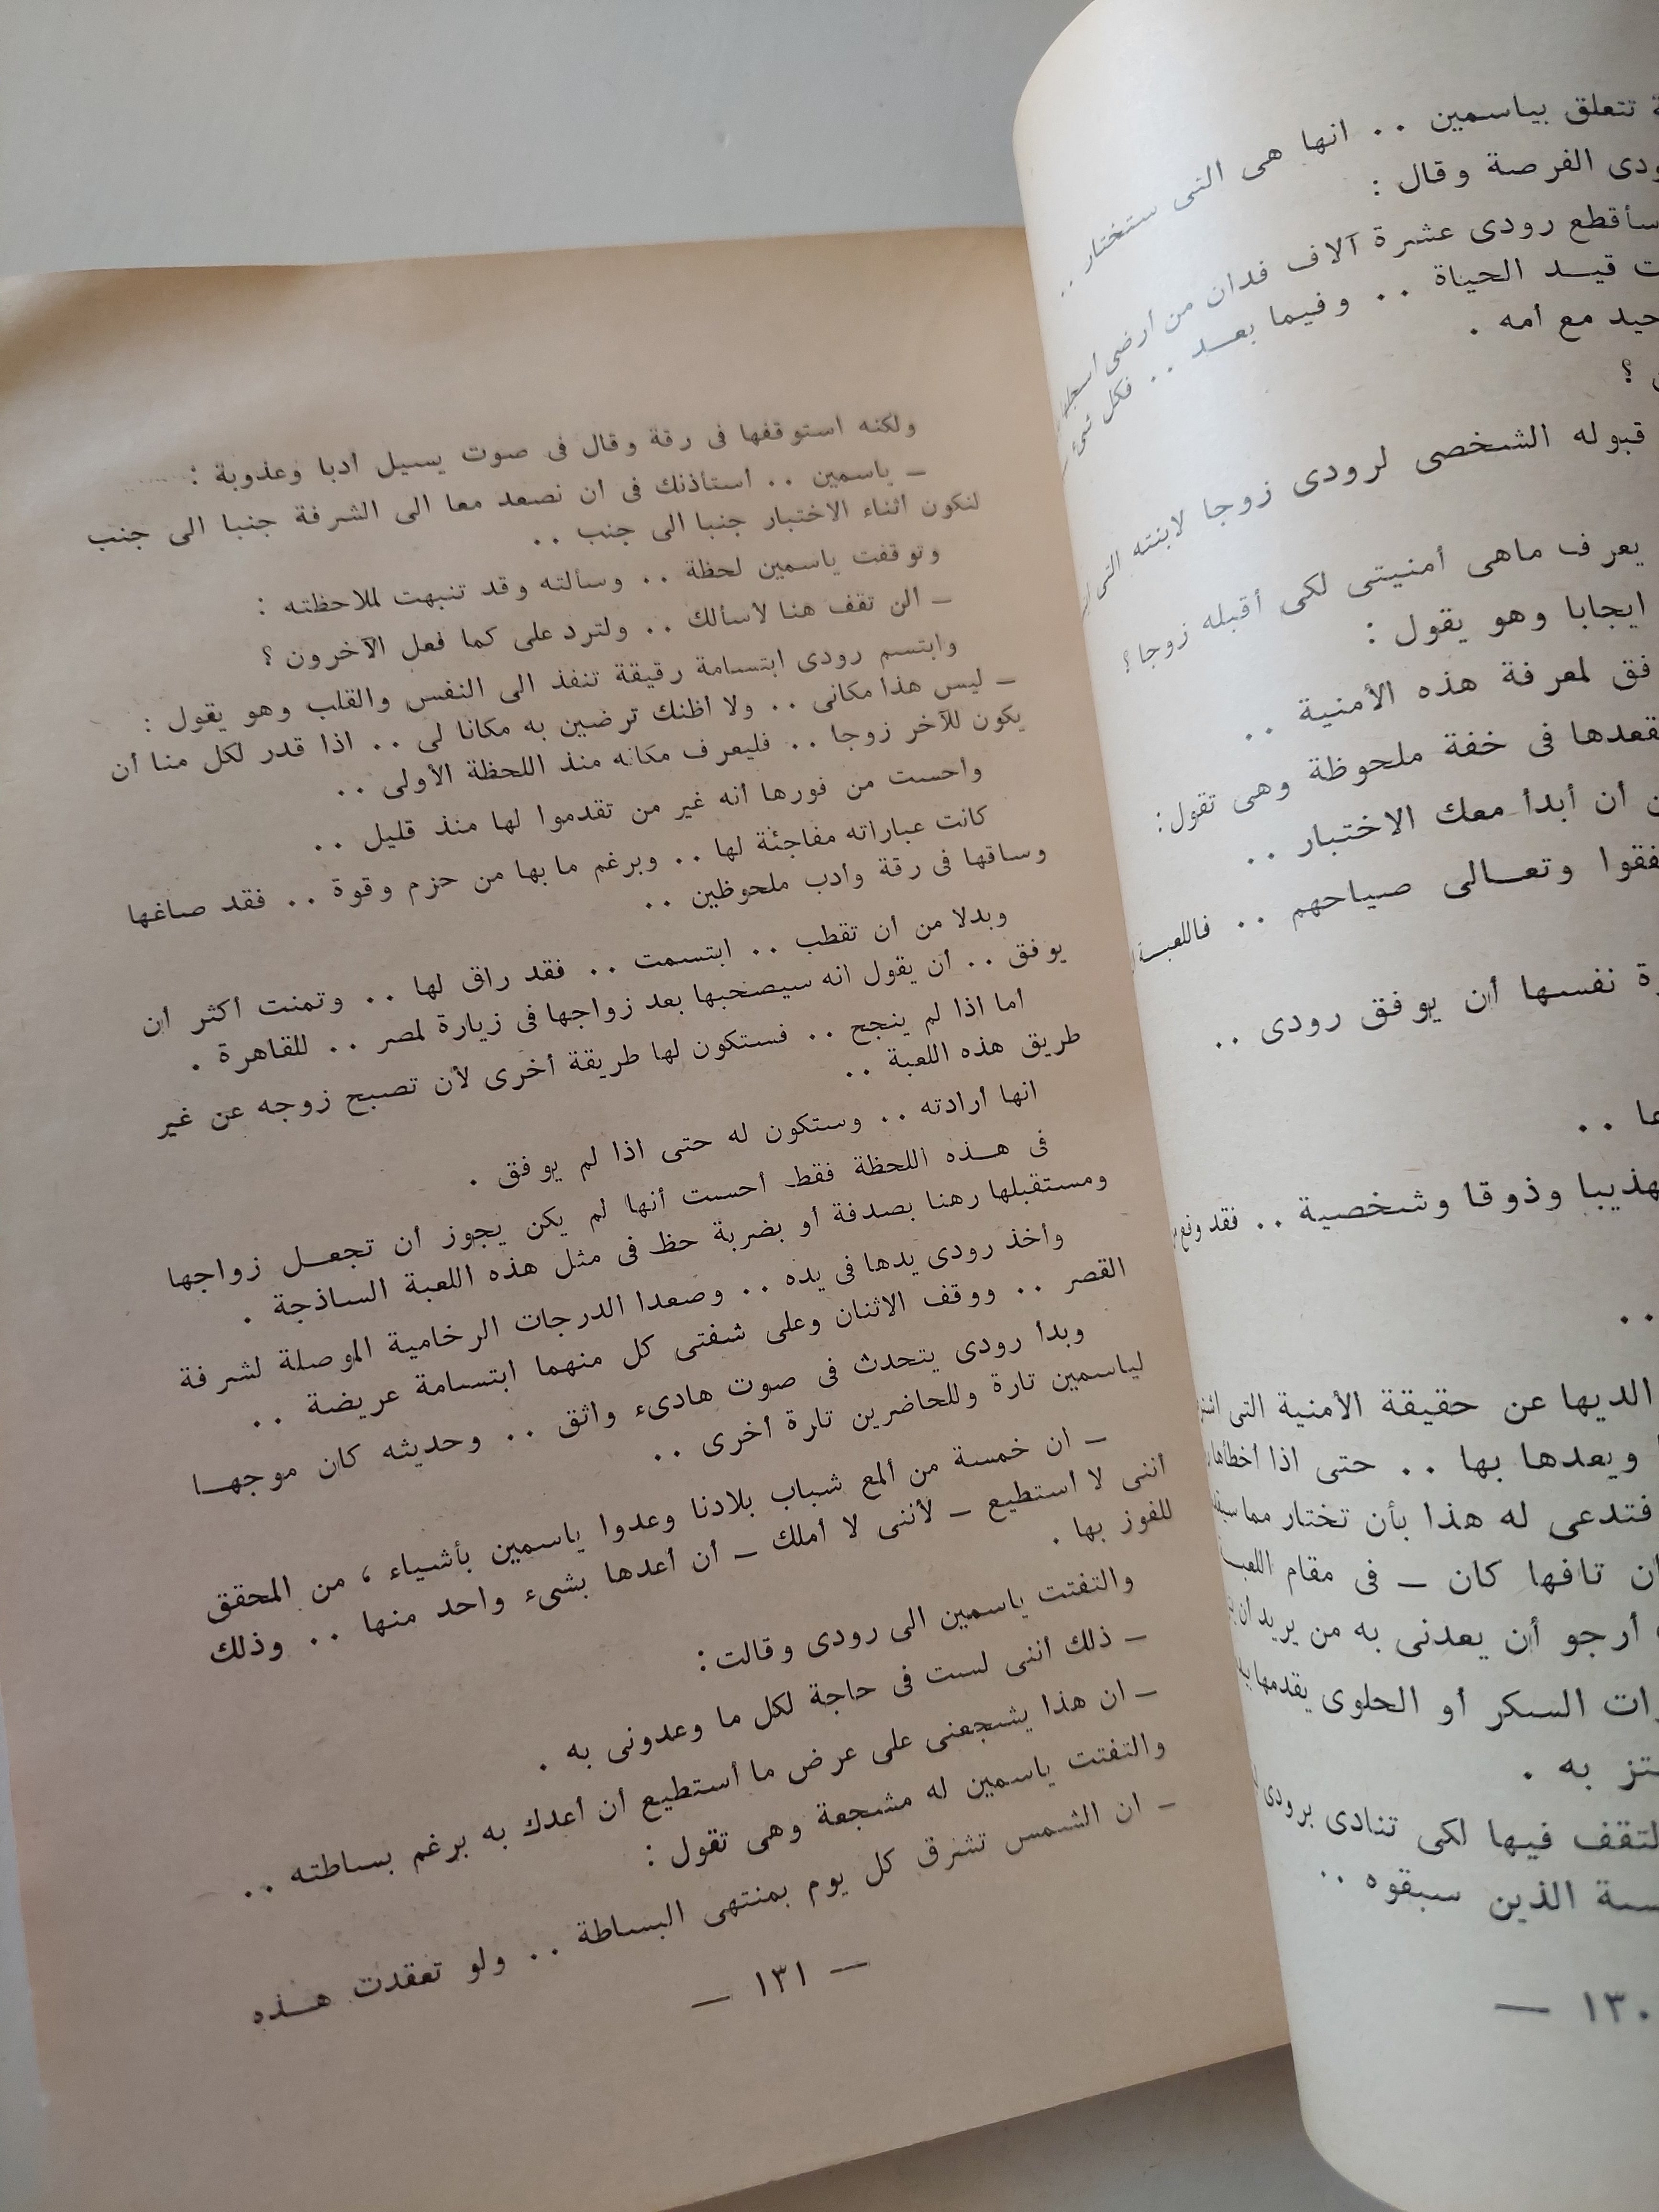 ة تتعلق بياسمين .. انها هى التى ستختار ..
ودى الفرصة وقال :
سأقطع رودى عشرة آلاف فدان من أرضى اسجلها
ت قيد الحياة .. وفيما بعد .. فكل شىء
حيد مع أمه .
؟
قبوله الشخصى لرودى زوجا لابنته التى
يعرف ماهى أمنيتى لكى أقبله زوجا ؟
ايجابا وهو يقول :
فق لمعرفة هذه الأمنية ..
قعدها فى خفة ملحوظة وهى تقول :
ن أن أبدأ معك الاختبار ..
فقوا وتعالى صياحهم .. فاللعبة
رة نفسها أن يوفق رودى ..
ها ..
هذيبا وذوقا وشخصية .. فقد
..
الديها عن حقيقة الأمنية التى
ويعدها بها .. حتى اذا أخطأها
فتدعى له هذا بأن تختار مما
ان تافها كان – فى مقام
أرجو أن يعدنى به من يريد أن
رات السكر أو الحلوى يقدمها
تز به .
لتقف فيها لكى تنادى برودى
سة الذين سبقوه ..
١٣٠ —
ولكنه استوقفها فى رقة وقال فى صوت يسيل ادبا وعذوبة :
– ياسمين .. استأذنك فى ان نصعد معا الى الشرفة جنبا الى جنب
لنكون اثناء الاختبار جنبا الى جنب ..
وتوقفت ياسمين لحظة .. وسألته وقد تنبهت لملاحظته :
– الن تقف هنا لأسألك .. ولترد على كما فعل الآخرون ؟
وابتسم رودى ابتسامة رقيقة تنفذ الى النفس والقلب وهو يقول :
– ليس هذا مكانى .. ولا اظنك ترضين به مكانا لى .. اذا قدر لكل منا أن
يكون للآخر زوجا .. فليعرف مكانه منذ اللحظة الأولى ..
واحست من فورها أنه غير من تقدموا لها منذ قليل ..
كانت عباراته مفاجئة لها .. وبرغم ما بها من حزم وقوة .. فقد صاغها
وساقها فى رقة وأدب ملحوظين ..
وبدلا من أن تقطب .. ابتسمت .. فقد راق لها .. وتمنت أكثر أن
يوفق .. أن يقول انه سيصحبها بعد زواجها فى زيارة لمصر .. للقاهرة .
اما اذا لم ينجح .. فستكون لها طريقة أخرى لأن تصبح زوجه عن غير
طريق هذه اللعبة ..
انها أرادته .. وستكون له حتى اذا لم يوفق .
فى هـذه اللحظة فقط أحست أنها لم يكن يجوز أن تجعل زواجها
ومستقبلها رهنا بصدفة أو بضربة حظ فى مثل هذه اللعبة الساذجة .
وأخذ رودى يدها فى يده .. وصعدا الدرجات الرخامية الموصلة لشرفة
القصر .. ووقف الاثنان وعلى شفتى كل منهما ابتسامة عريضة ..
وبدأ رودى يتحدث فى صوت هادىء واثق .. وحديثه كان موجها
لياسمين تارة وللحاضرين تارة أخرى ..
– ان خمسة من ألمع شباب بلادنا وعدوا ياسمين بأشياء ، من المحقق
أننى لا أستطيع – لأننى لا أملك – أن أعدها بشىء واحد منها .. وذلك
للفوز بها .
والتفتت ياسمين الى رودى وقالت :
– ذلك أننى لست فى حاجة لكل ما وعدونى به .
– ان هذا يشجعنى على عرض ما أستطيع أن أعدك به برغم بساطته ..
والتفتت ياسمين له مشجعة وهى تقول :
– ان الشمس تشرق كل يوم بمنتهى البساطة .. ولو تعقدت هـذه
— ١٣١ —